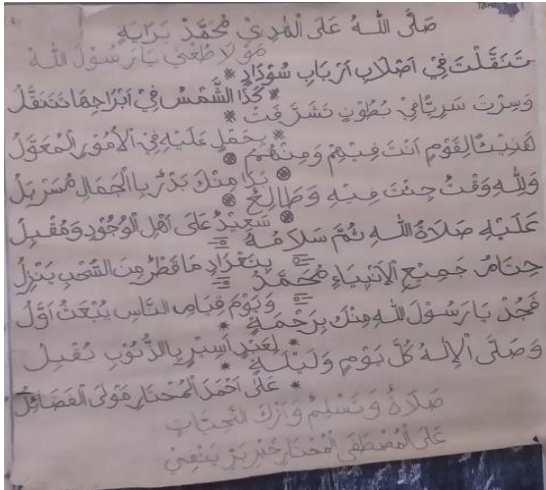 صَلَّى اللهُ عَلَى الْهَادِيْ مُحَمَّدْ بَرَايَةٍ
مَوْلَا طُعْنِيْ يَا رَسُوْلَ اللهْ
تَنَقَّلْتَ فِيْ اَصْلَابِ اَرْبَابِ سُوْدَادٍ *
* كَذَا الشَّمْسُ فِيْ اَبْرَاجِهَا تَتَنَقَّلُ
وَسِرْتَ سَرِيًّا فِيْ بُطُوْنٍ تَشَرَّفَتْ *
* بِحَمْلٍ عَلَيْهِ فِي الْاُمُوْرِ الْمُعَوَّلُ
هَنِيْئًا لِقَوْمٍ اَنْتَ فِيْهِمْ وَمِنْهُمُ
بَدَا مِنْكَ بَدْرٌ بِالْجَمَالِ مُسَرْبَلُ
وَلِلّهِ وَقْتٌ جِئْتَ فِيْهِ وَطَالِعٌ
سَعِيْدٌ عَلَى اَهْلِ الْوُجُوْدِ وَمُقْبِلُ
عَلَيْهِ صَلَاةُ اللهِ ثُمَّ سَلَامُهُ
بِتَعْدَادِ مَا قَطْرٌ مِنَ السُّحْبِ يَنْزِلُ
خِتَامُ جَمِيْعِ الْاَنْبِيَاءِ مُحَمَّدٌ
وَيَوْمَ قِيَامِ النَّاسِ يُبْعَثُ اَوَّلُ
فَجُدْ يَا رَسُوْلَ اللهِ مِنْكَ بِرَحْمَةٍ *
* لِعَبْدٍ اَسِيْرٍ بِالذُّنُوْبِ يُقْبِلُ
وَصَلَّى الْاِلهُ كُلَّ يَوْمٍ وَلَيْلَةٍ *
* عَلَى اَحْمَدَ الْمُخْتَارِ مَوْلَى الْفَضَائِلُ
صَلَاةٌ وَتَسْلِيْمٌ وَاَزْكَى التَّحِيَّاتِ
عَلَى الْمُصْطَفَى الْمُخْتَارِ خَيْرِ